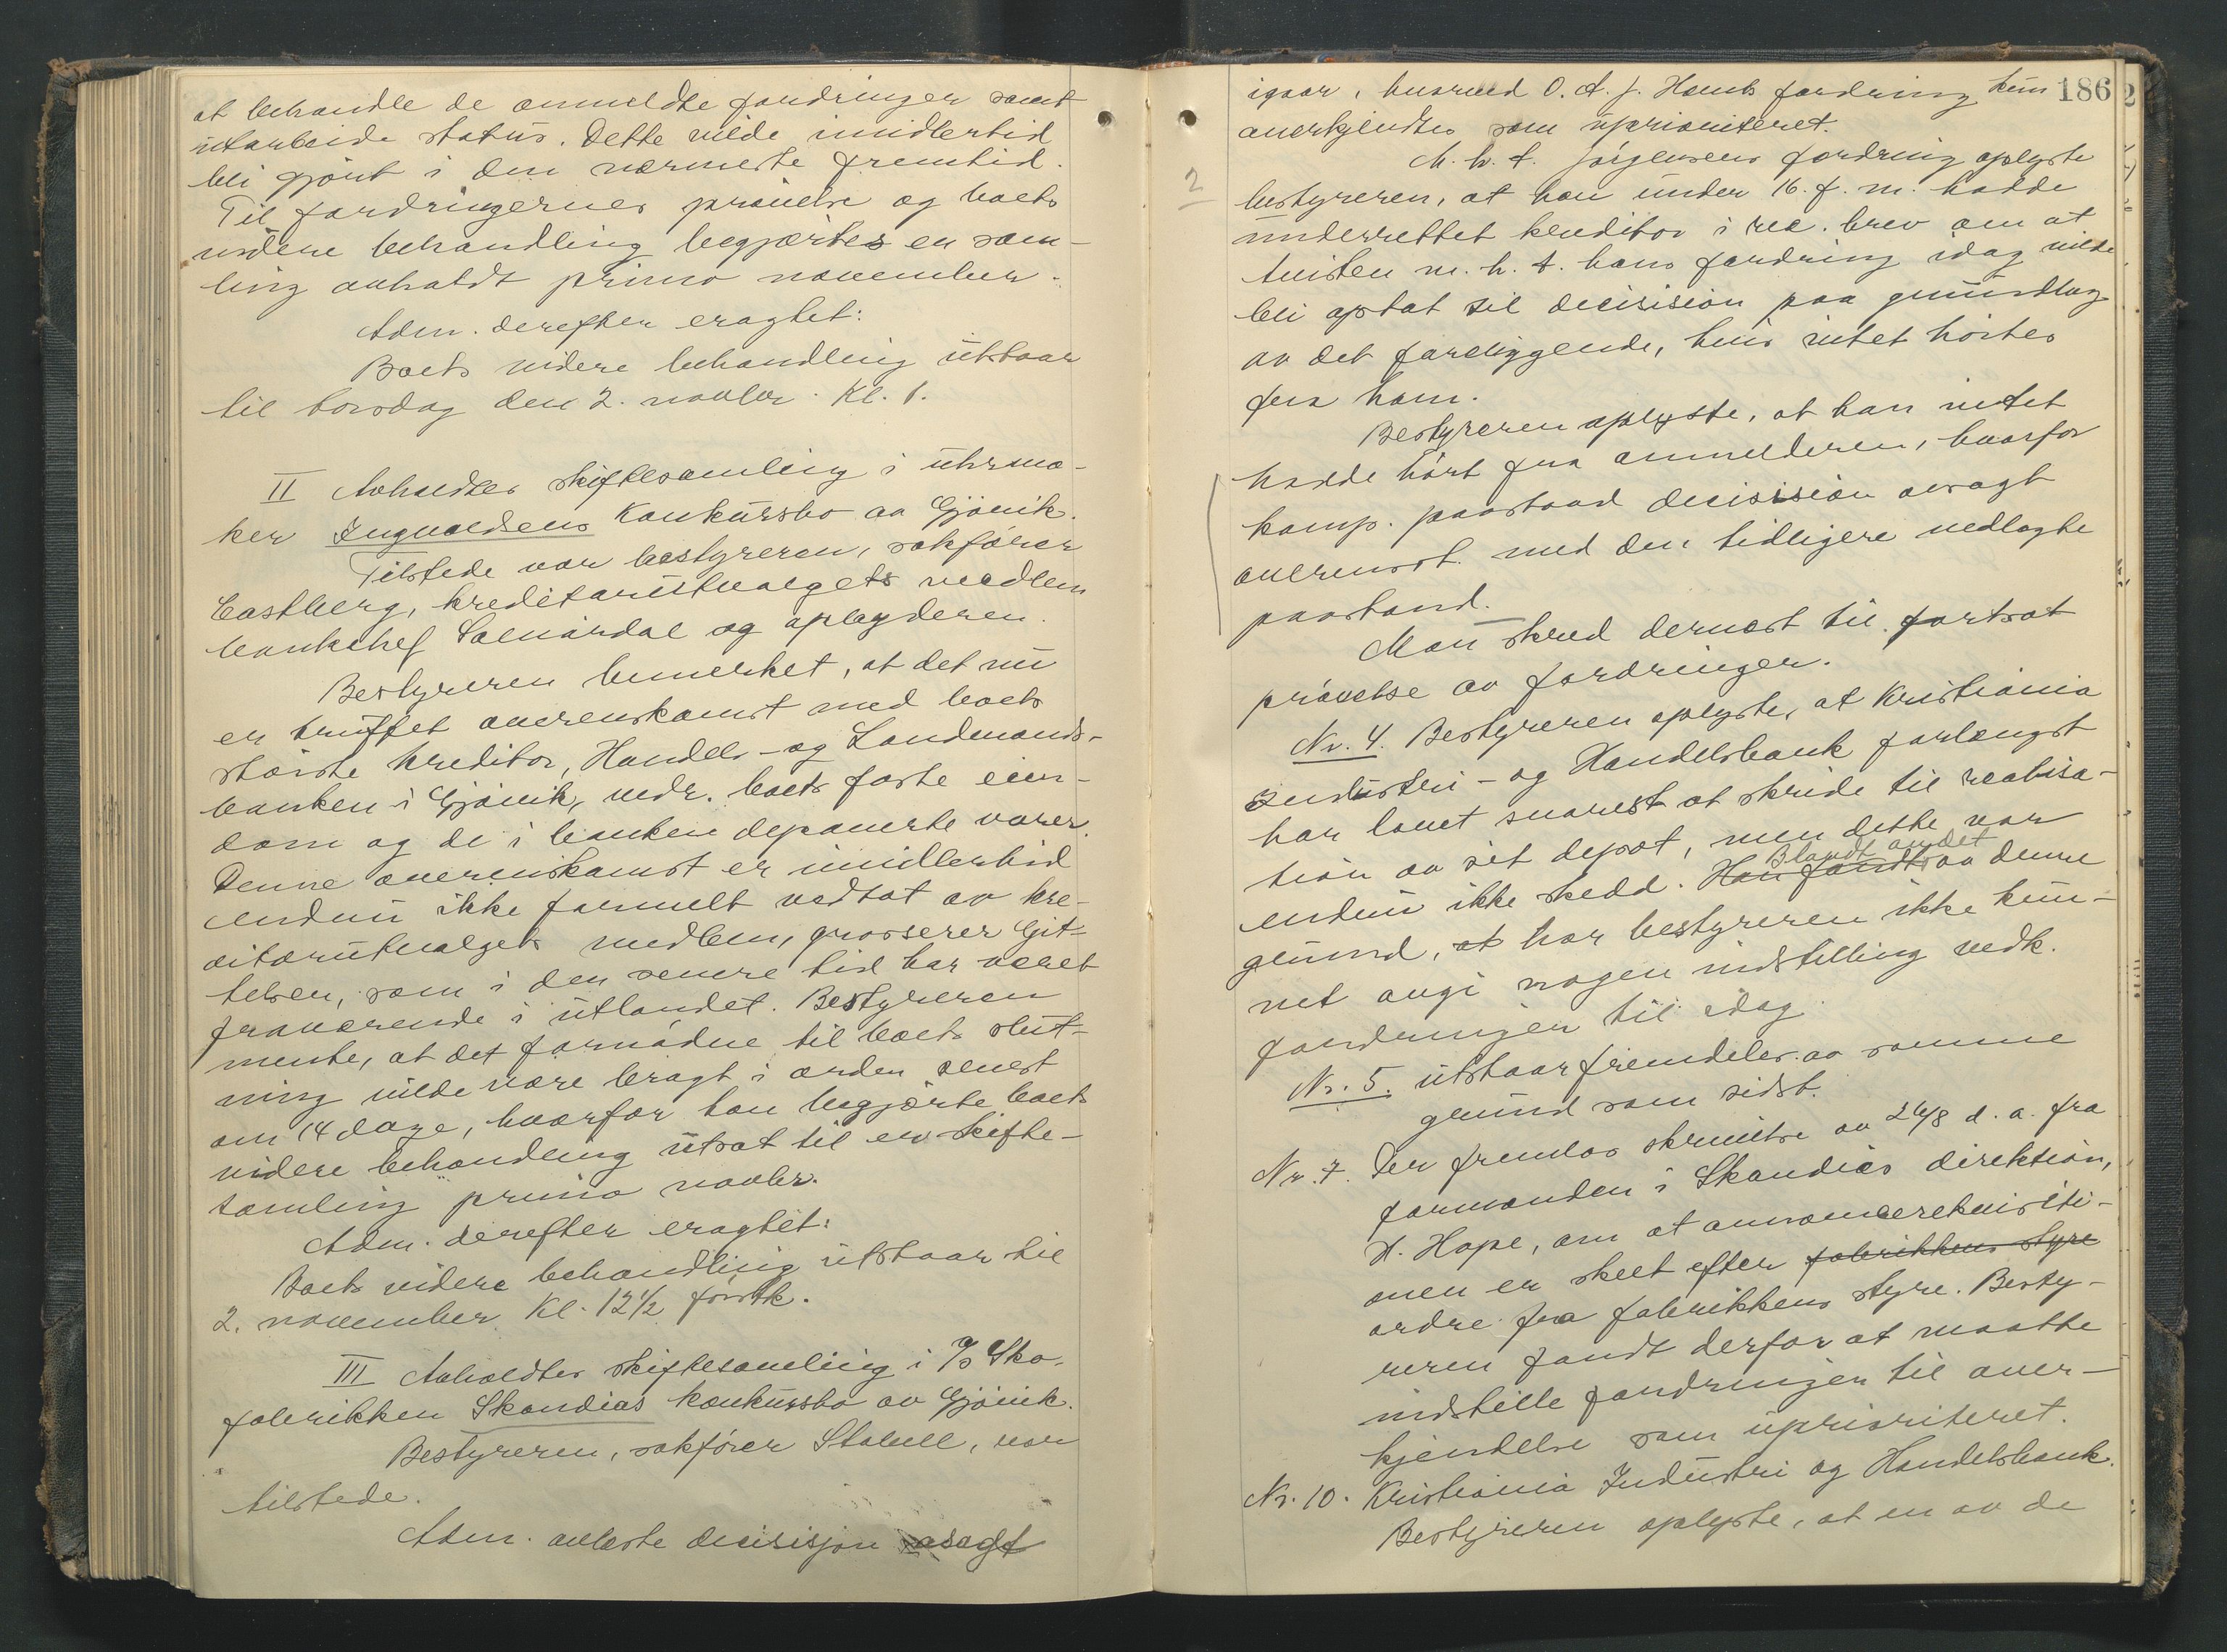 at behandle de anmeldte fordringer samt
utarbeide status. Dette vilde imidlertid
bli gjort i den nærmeste fremtid.
Til fordringernes prøvelse og boets
videre behandling begjærtes en sam-
ling avholdt primo november.
Adm. derefter eragtet:
Boets videre behandling utstaar
til torsdag den 2. novbr. Kl. 1.
II Avholdtes skiftesamling i uhrma-
ker Ingvaldsens konkursbo av Gjøvik.
Tilstede var bestyreren, sakfører
Castberg, kreditorutvalgets medlem
banksjef Solvardal og oplæyderen.
Bestyreren bemerket, at det nu
er truffet overenskomst med boets
største kreditor, Handels- og Landmands-
banken i Gjøvik, vedr. boets faste eien-
dom og de i banken deponerte varer.
Denne overenskomst er imidlertid
endnu ikke formelt vedtat av kre-
ditorutvalgets medlem, grosserer Git-
telsen, som i den senere tid har været
fraværende i utlandet. Bestyreren
mente, at det fornødne til boets slut-
ning vilde være bragt i orden senest
om 14 dage, hvorfor han begjærte boets
videre behandling utsat til en skifte-
samling primo novbr.
Adm. derefter eragtet:
Boets videre behandling utstaar til
2. november Kl. 12½ førstk.
III Avholdtes skiftesamling i A/S Sko-
fabrikken Skandias konkursbo av Gjøvik.
Bestyreren, sakfører Stabell, var
tilstede.
Adm. avleste decisisjon avsagt
186
igaar, hvorved O. A. J. Hambs fordring kun
anerkjendtes som uprioriteret.
M. h. t. Jørgensens fordring oplyste
2
bestyreren, at han under 16. f. m. hadde
underrettet kreditor i rec. brev om at
tvisten m. h. t. hans fordring idag vilde
bli optat til decisision paa grundlag
av det foreliggende, hvis intet hørtes
fra ham.
Bestyreren oplyste, at han intet
hadde hørt fra anmelderen, hvorfor
komp. paastaad decisision avsagt
overensst. med den tidligere nedlagte
paastand.
Man skred dernæst til fortsat
prøvelse av fordringer.
Nr. 4. Bestyreren oplyste, at Kristiania
Industri- og Handelsbank forlængst
har lovet snarest at skride til realisa-
tion av sit depot, men dette var
Blandt andet
endnu ikke skedd. Han fandt av denne
grund, at har bestyreren ikke kun-
net angi nogen indstilling vedk.
fordringen til idag.
Nr. 5. utstaar fremdeles av samme
grund som sidst.
Nr. 7. Der fremlas skrivelse av 24/8 d. a. fra
formanden i Skandias direktion,
H. Hope, om at annoncerekvisiti-
onen er skeet efter fabrikkens styre
ordre fra fabrikkens styre. Besty-
reren fandt derfor at maatte
indstille fordringen til aner-
kjendelse som uprioriteret.
Nr. 10. Kristiania Industri og Handelsbank.
Bestyreren oplyste, at en av de